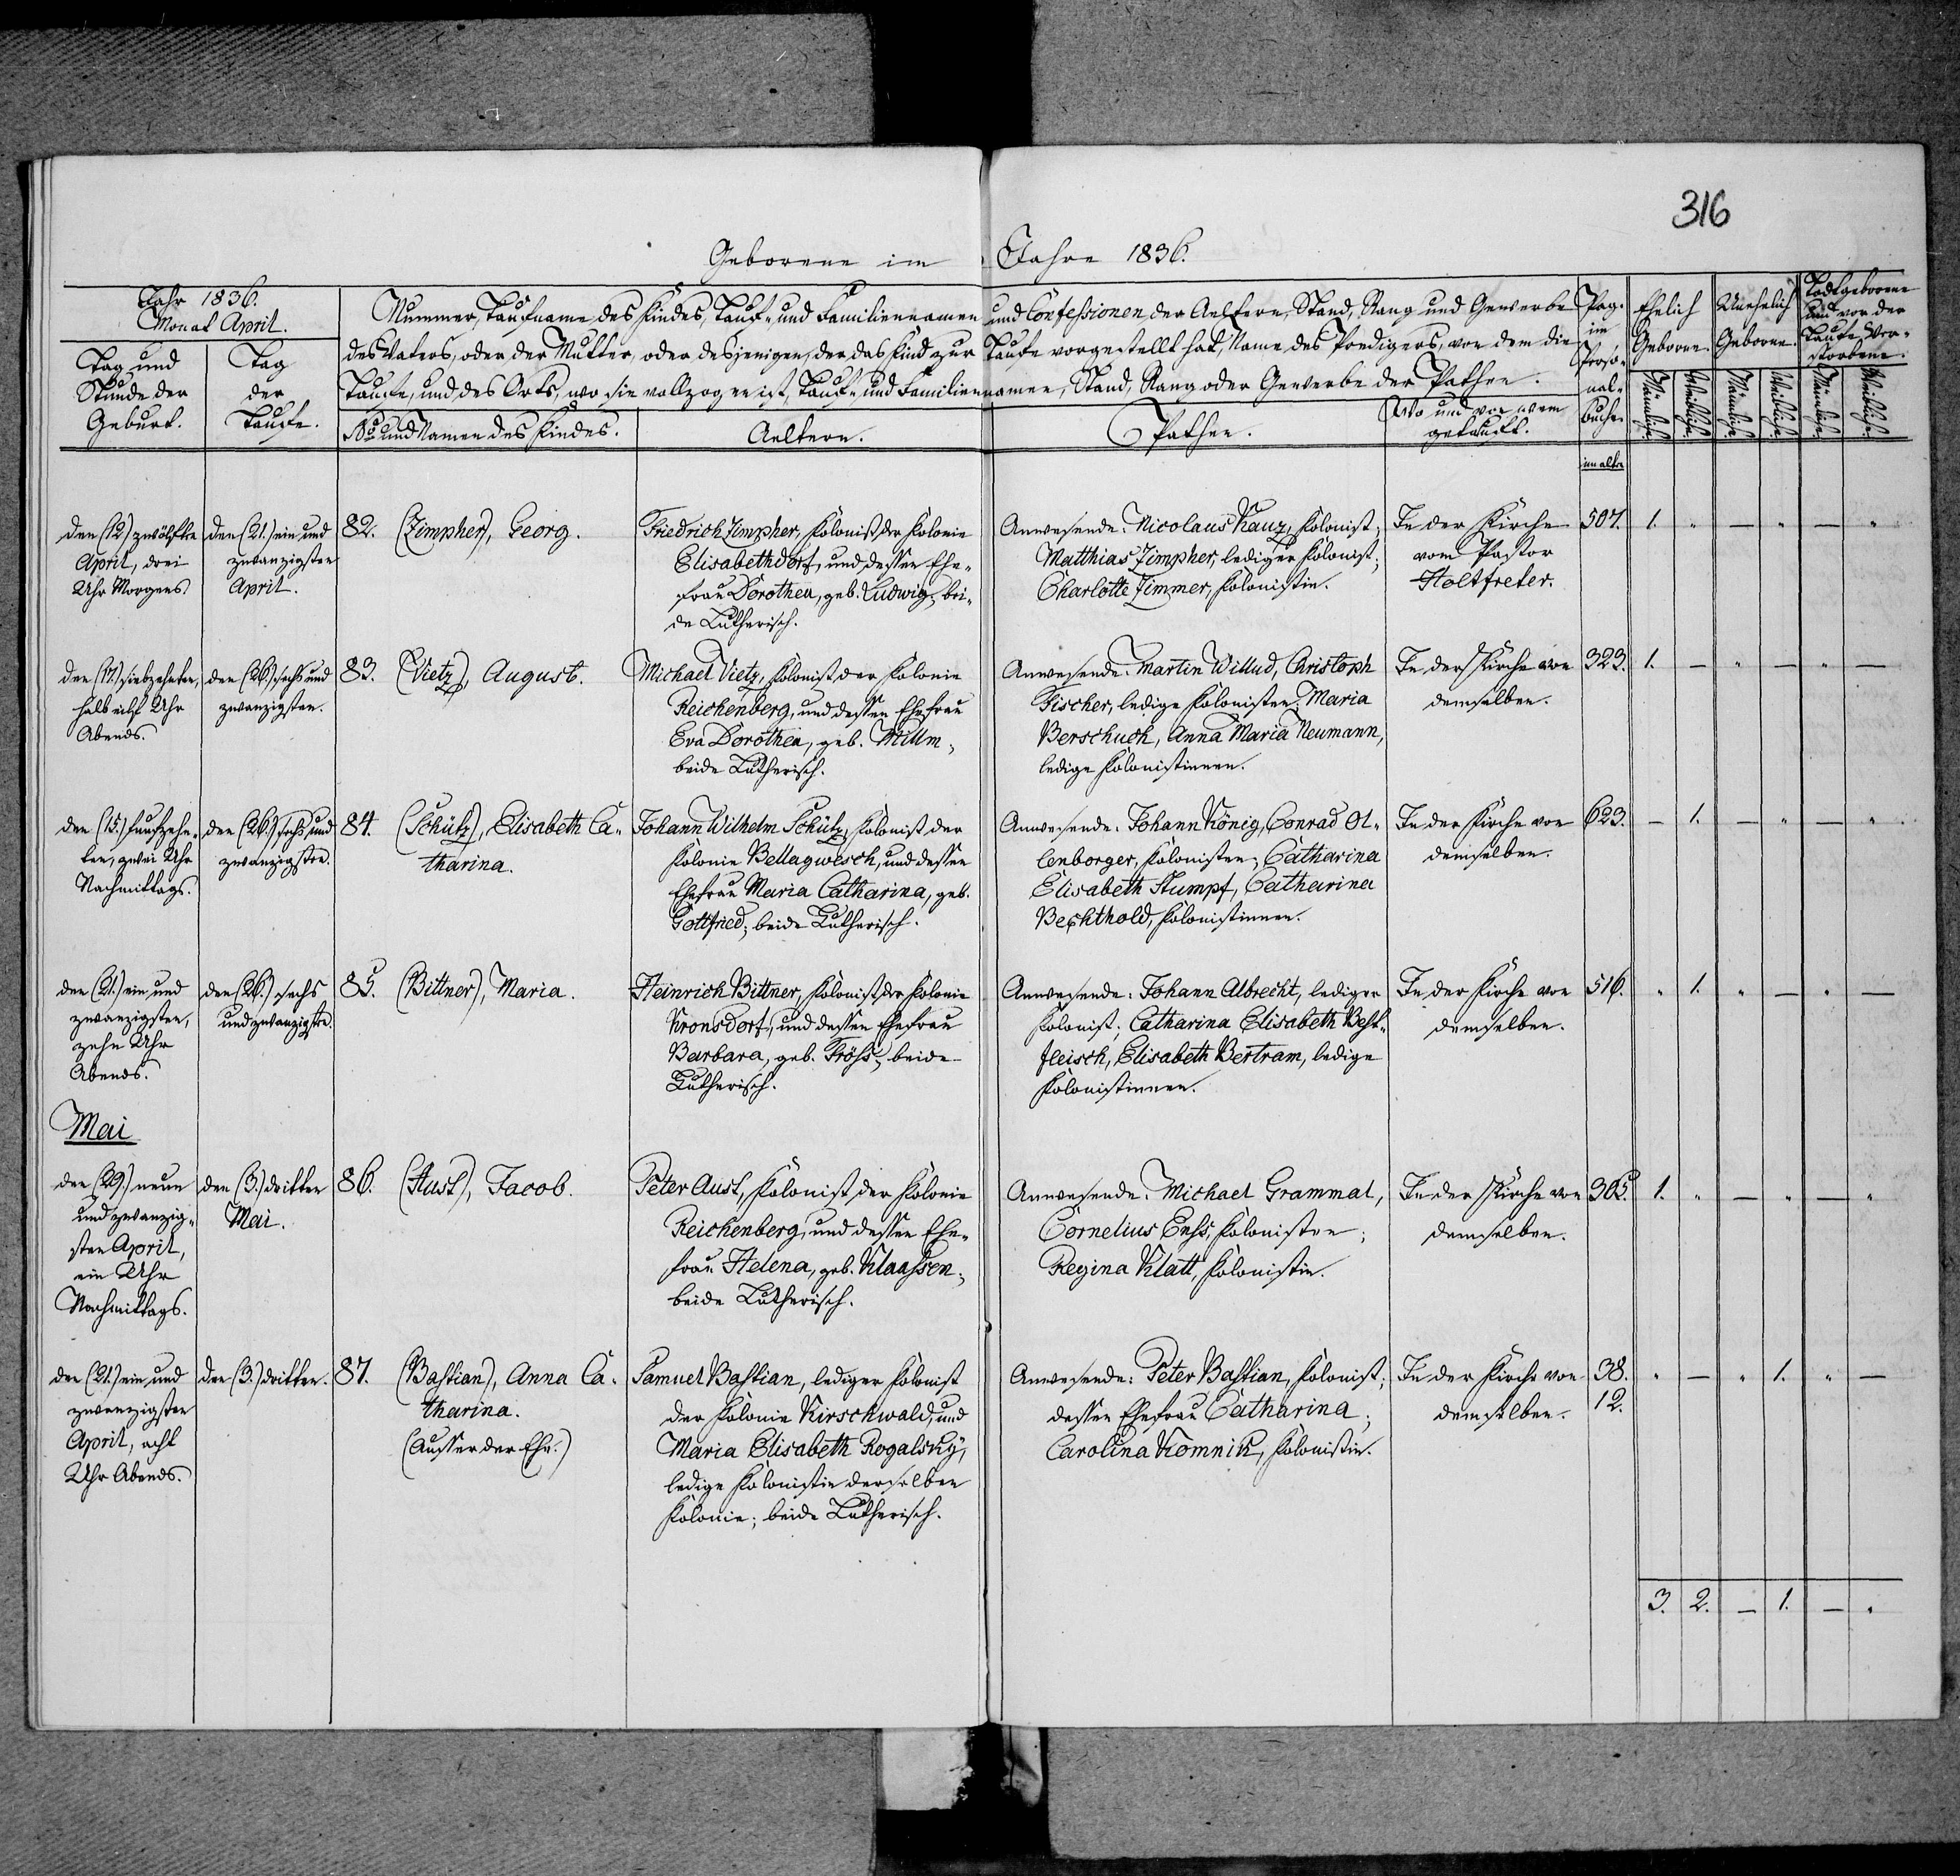 316
Geborene im Jahre 1836.
Jahr 1836.
Monat April.
Tag und
Stunde der
Geburt.
Tag
der
Taufe.
Nummer, Taufname des Kindes, Tauf- und Familiennamen und Confessionen der Aeltern, Stand, Rang und Gewerbe
des Vaters, oder der Mutter, oder desjenigen, der das Kind zur Taufe vorgestellt hat, Name des Predigers, von dem die
Taufe, und des Orts, wo sie vollzogen ist, Tauf- und Familiennamen, Stand, Rang oder Gewerbe der Pathen.
No und Namen des Kindes.
Aeltern.
Pathen.
Wo und von wem
getauft.
Pag.
im
Perso-
nal-
Buche.
Ehelich
Geborene.
Unehelich
Geborene.
Todtgeborene
und vor der
Taufe Ver-
storbene.
Männliche.
Weibliche.
Männliche.
Weibliche.
Männliche.
Weibliche.
im alten
den (12.) zwölften
April, drei
Uhr Morgens.
den (21.) ein und
zwanzigsten
April.
82. (Zimpher), Georg.
Friedrich Zimpher, Kolonist der Kolonie
Elisabethdorf, und dessen Ehe-
frau Dorothea, geb. Ludwig, bei-
de Lutherisch.
Anwesende: Nicolaus Kauz, Kolonist;
Matthias Zimpher, lediger Kolonist;
Charlotte Zimmer, Kolonistin.
In der Kirche
vom Pastor
Holtfreter.
507. 1. " — " — "
den (17.) siebzehnten,
halb eilf Uhr
Abends.
den (26.) sechs und
zwanzigsten.
83. (Vietz), August.
Michael Vietz, Kolonist der Kolonie
Reichenberg, und dessen Ehefrau
Eva Dorothea, geb. Millm,
beide Lutherisch.
Anwesende: Martin Willud, Christoph
Fischer, ledige Kolonisten; Maria
Berschuch, Anna Maria Neumann,
ledige Kolonistinnen.
In der Kirche von
demselben.
323. 1. — " — " —
den (15.) funfzehn-
ten, zwei Uhr
Nachmittags.
den (26.) sechs und
zwanzigsten.
84. (Schütz), Elisabeth Ca-
tharina.
Johann Wilhelm Schütz, Kolonist der
Kolonie Bellagwesch, und dessen
Ehefrau Maria Catharina, geb.
Gottfried; beide Lutherisch.
Anwesende: Johann König, Conrad Ol-
lenborger, Kolonisten; Catharina
Elisabeth Stumpf, Catharina
Bechthold, Kolonistinnen.
In der Kirche von
demselben.
623. — 1. — " — "
den (21.) ein und
zwanzigsten,
zehn Uhr
Abends.
den (26.) sechs
und zwanzigsten.
85. (Bittner), Maria.
Heinrich Bittner, Kolonist der Kolonie
Kronsdorf, und dessen Ehefrau
Barbara, geb. Fröhs; beide
Lutherisch.
Anwesende: Johann Albrecht, lediger
Kolonist; Catharina Elisabeth Best-
fleisch, Elisabeth Bertram, ledige
Kolonistinnen.
In der Kirche von
demselben.
516. " 1. " — " —
Mai
den (29.) neun
und zwanzig-
sten April,
ein Uhr
Nachmittags.
den (3.) dritten
Mai.
86. (Aust), Jacob.
Peter Aust, Kolonist der Kolonie
Reichenberg, und dessen Ehe-
frau Helena, geb. Klaassen;
beide Lutherisch.
Anwesende: Michael Grammal,
Cornelius Enss, Kolonisten;
Regina Klatt, Kolonistin.
In der Kirche von
demselben.
305. 1. " — " — "
den (21.) ein und
zwanzigsten
April, acht
Uhr Abends.
den (3.) dritten.
87. (Bastian), Anna Ca-
tharina.
(Ausser der Ehe.)
Samuel Bastian, lediger Kolonist
der Kolonie Kirschwald, und
Maria Elisabeth Rogalsky,
ledige Kolonistin derselben
Kolonie; beide Lutherisch.
Anwesende: Peter Bastian, Kolonist;
dessen Ehefrau Catharina;
Carolina Komnik, Kolonistin.
In der Kirche von
demselben.
38.
12.
" — " 1. " —
3. 2. — 1. — "